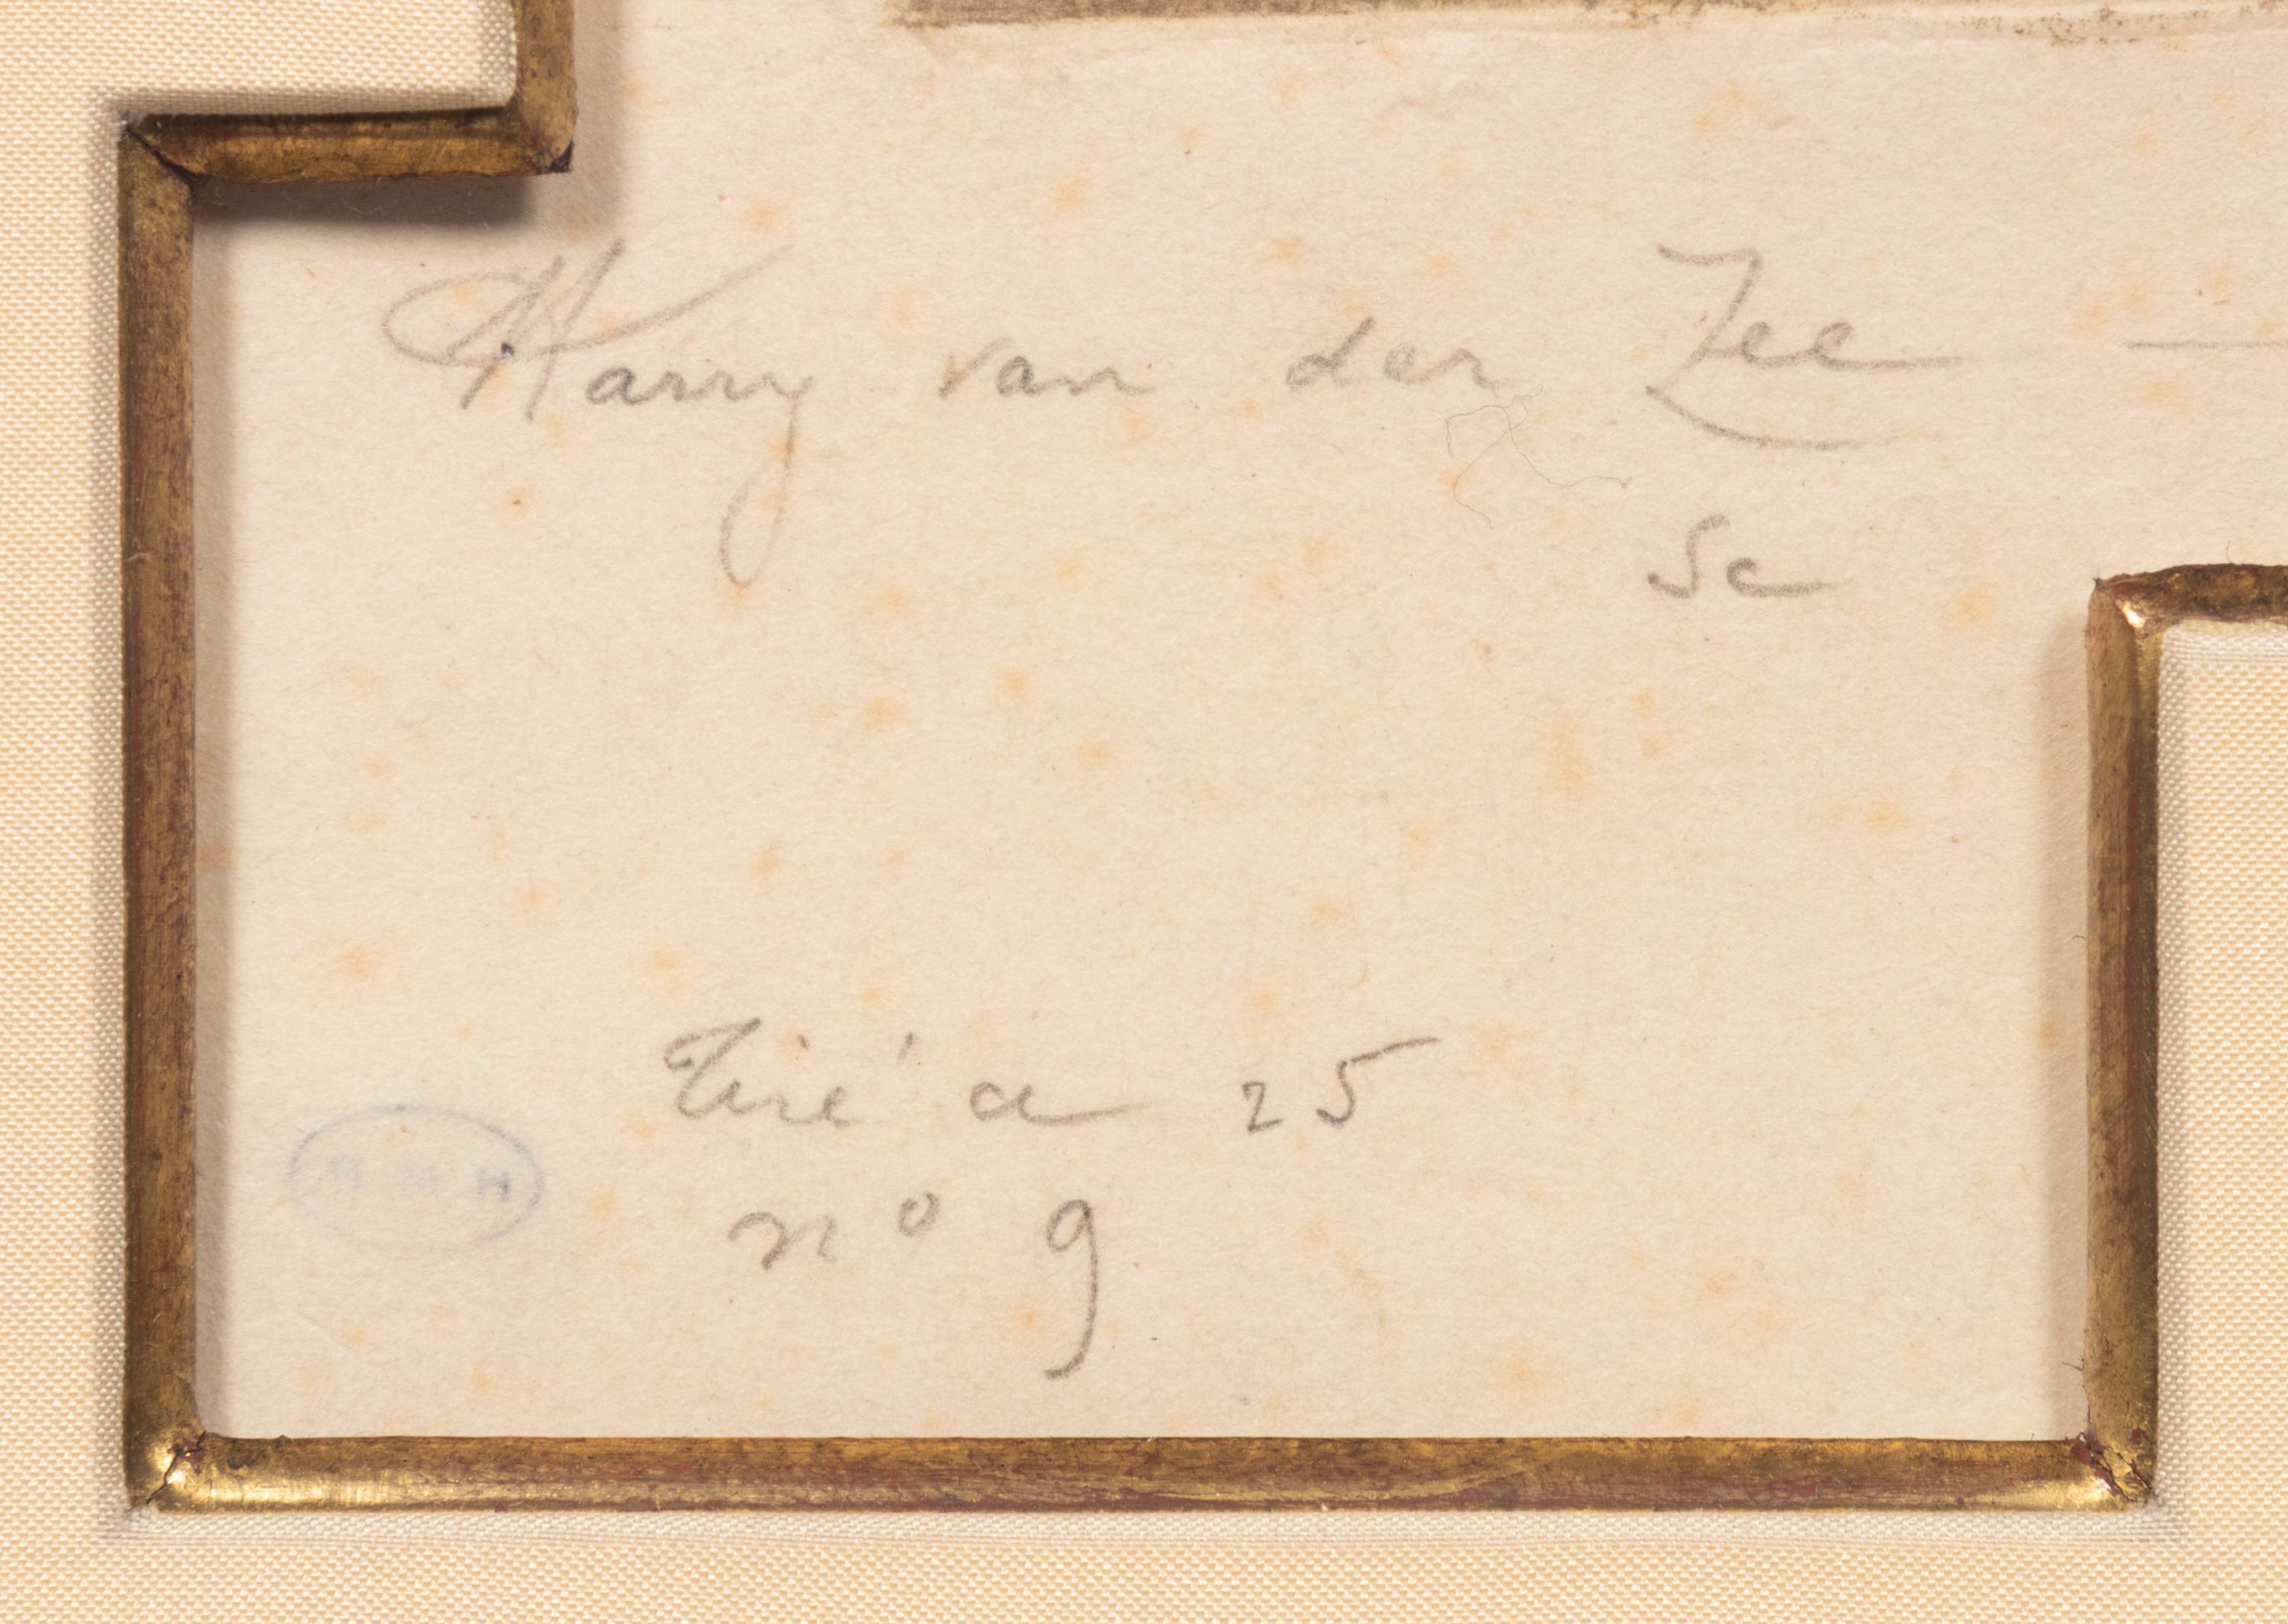 Harry van der Zee —
Sc
Tiré a 25
n o 9